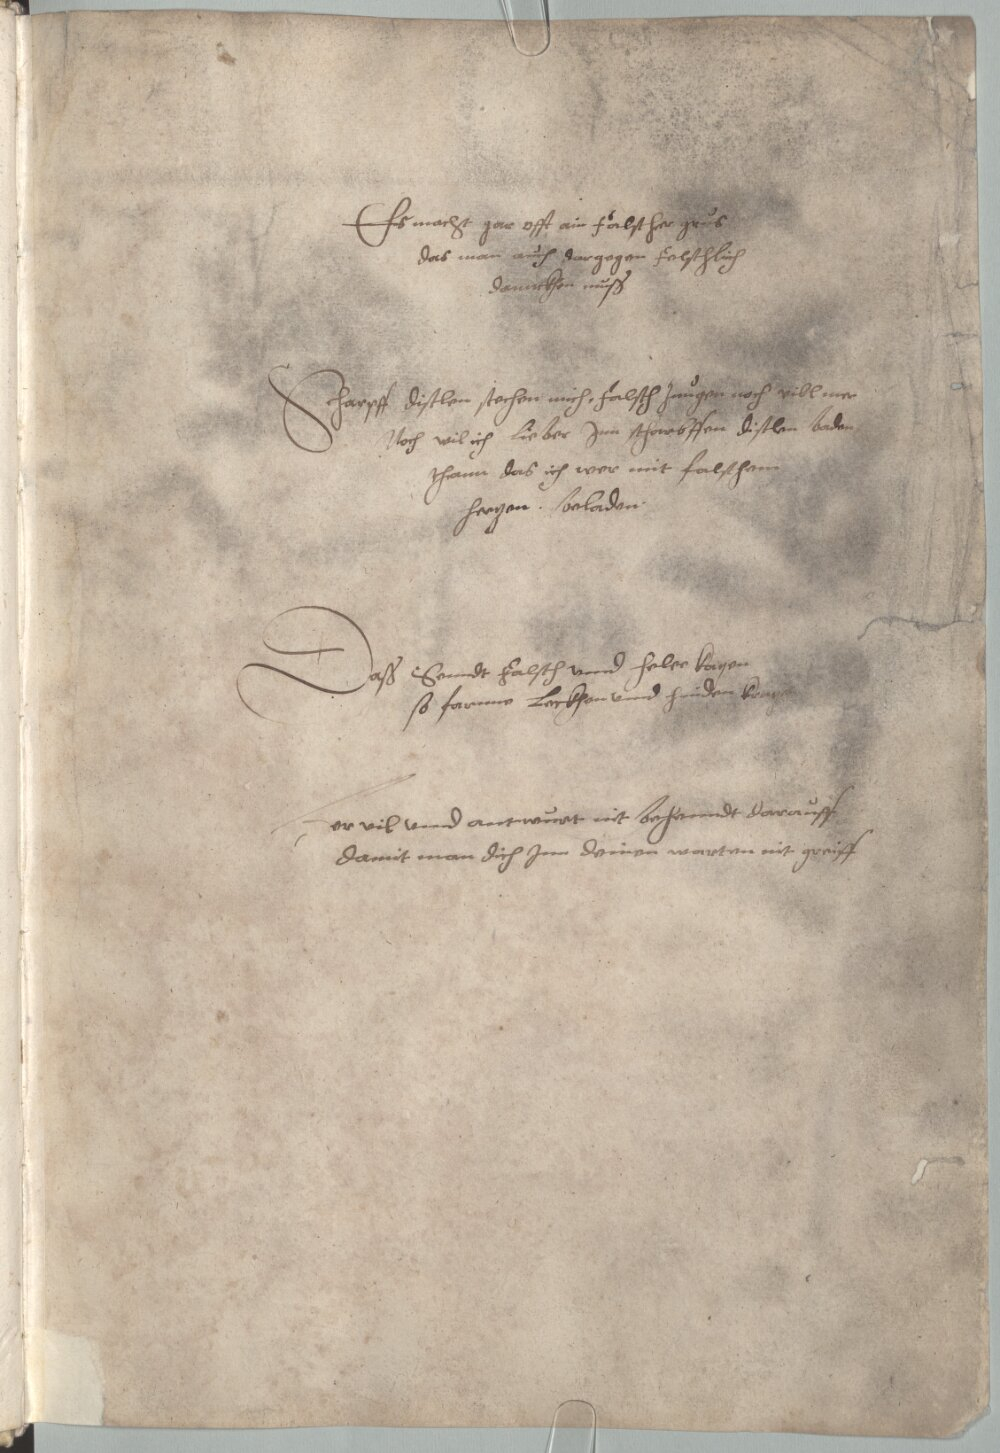 Es macht gar offt ain falscher grus
das man auch dargegen felschlich
dannckhen muß
Scharpff distlen stechen mich, falsch zungen noch vill mer
Noch wil ich lieber Inn scharpffen distlen baden
dann das ich wer mit falschem
hertzen . beladen .
Daß Senndt falsch vnnd heler katzen
so fornne leckhen vnnd hinden kratzen
er vil vnnd antwurt nit behenndt darauff
damit man dich Inn deinen worten nit greiff